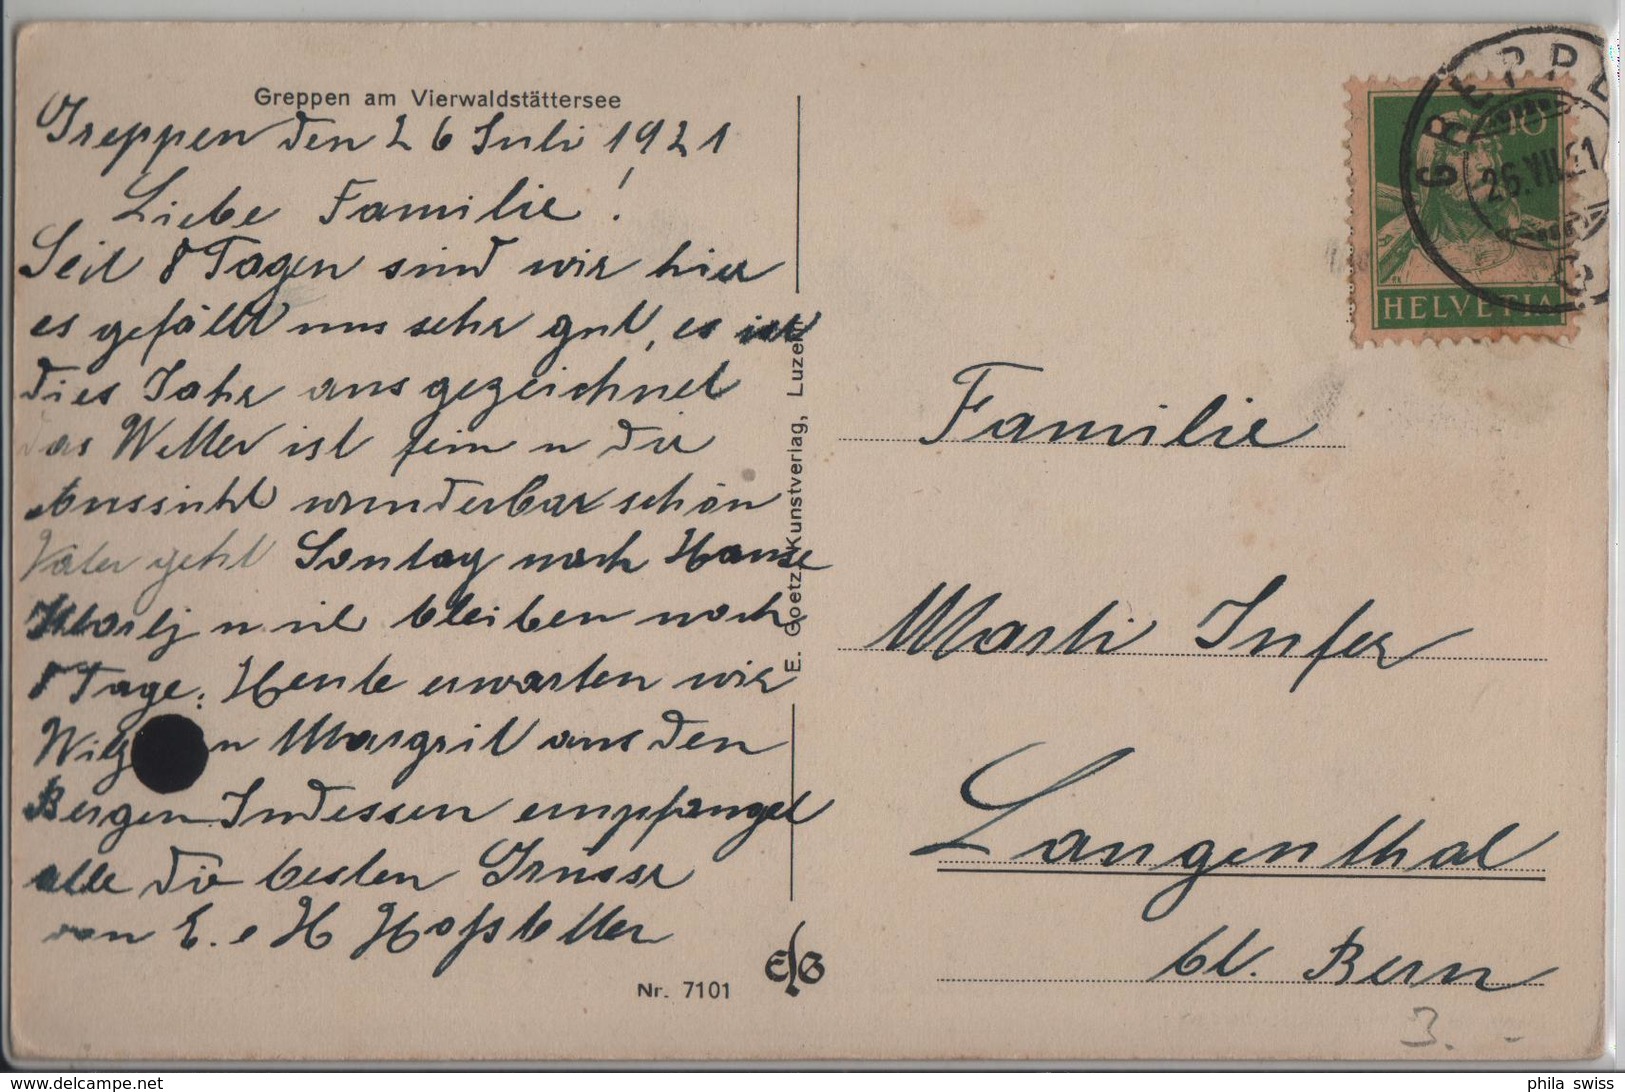 Greppen am Vierwaldstättersee
Greppen den 26 Juli 1921
Liebe Familie!
Seit 8 Tagen sind wir hier
es gefällt uns sehr gut, es ist
dies Jahr ausgezeichnet
das Wetter ist fein u die
Aussicht wunderbar schön
Vater geht Sontag nach Hause
bleiben noch
8 Tage. Heute erwarten wir
Margrit aus den
Bergen. Indessen empfanget
alle die besten Grüsse
von E. e H Hofstetter
Nr. 7101
E. Goetz, Kunstverlag, Luzern
GREPPE
26.VII.21
10
HELVETIA
Familie
Marti Infer
Langenthal
Bern
3. -
phila swiss